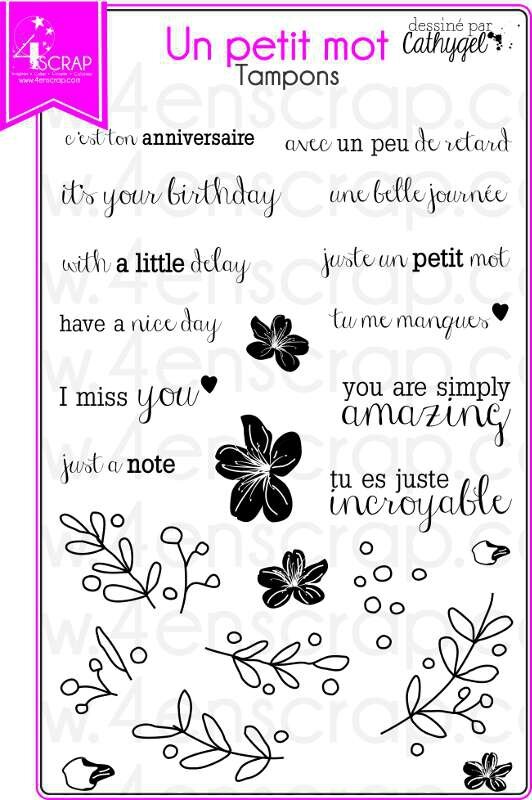 Un petit mot
dessiné par
Cathygel
Tampons
4SCRAP
Imaginer - Créer - Colorier
www.4enscrap.com
c'est ton anniversaire
avec un peu de retard
it's your birthday
une belle journée
with a little delay
juste un petit mot
have a nice day
tu me manques
I miss you
you are simply
amazing
just a note
tu es juste
incroyable
www.4enscrap.com